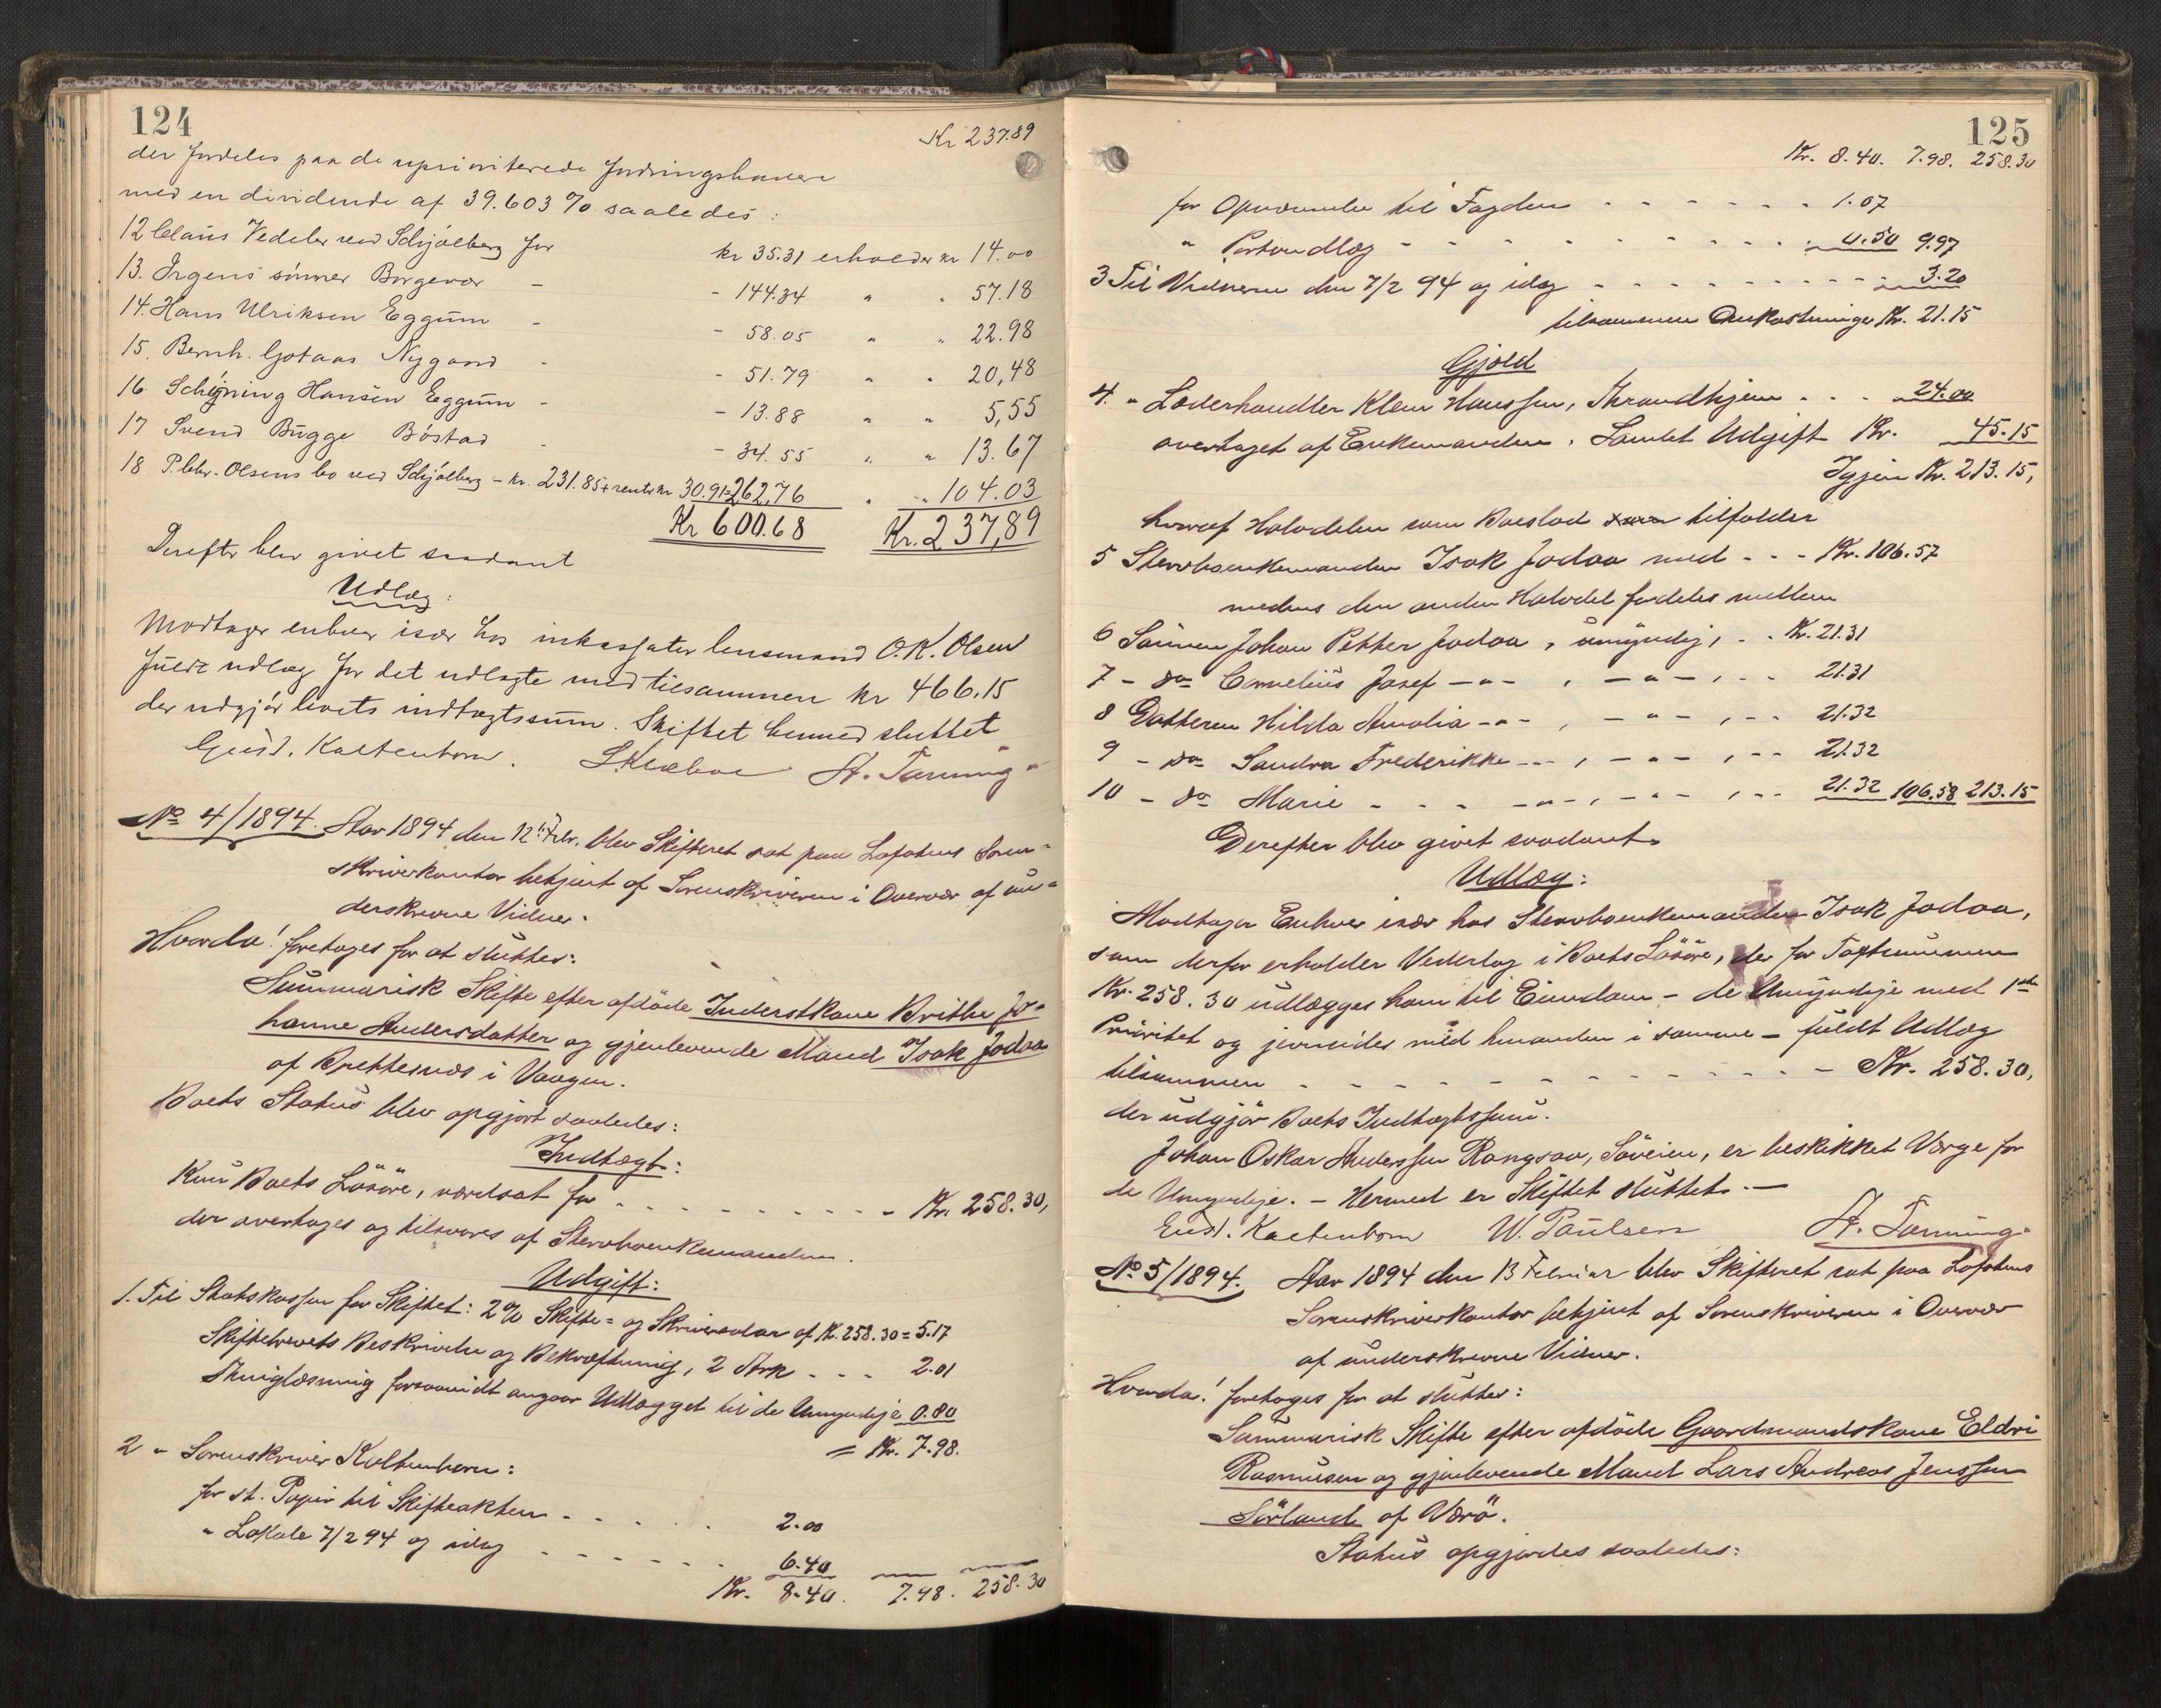 124
Kr 237.89
der fordeles paa de uprioriterede fordringshavere
med en dividende af 39.603 % saaledes:
12 Claus Vedeler ved Schjølberg for kr 35.31 erholder kr 14.00
13. Irgens sönner Borgevær - - 144.34 " " 57.18
14. Hans Ulriksen Eggum - - 58.05 " " 22.98
15. Bernh. Gotaas Nygaard - - 51.79 " " 20,48
16 Schjøning Hansen Eggum - - 13.88 " " 5,55
17 Svend Bugge Böstad - - 34.55 " " 13.67
18 P. Chr. Olsens bo ved Schjölberg - kr. 231.85 + rente kr 30.91 = 262,76 " " 104.03
Kr 600.68 Kr. 237,89
Derefter blev givet saadant
Udlæg:
Modtager enhver især hos inkassator lensmand O.K. Olsen
fuldt udlæg for det udlagte med tilsammen kr 466.15
der udgjör boets indtægtssum. Skiftet hermed sluttet
Gust. Kaltenborn. A. Tanning
No 4/1894. Aar 1894 den 12te Febr. blev Skifteret sat paa Lofotens Soren-
skriverkontor betjent af Sorenskriveren i Overvær af un-
derskrevne Vidner.
Hvorda! foretoges for at sluttes:
Summarisk Skifte efter afdöde Inderstkone Brithe Jo-
hanne Andersdatter og gjenlevende Mand Isak Jodaa
af Brettesnæs i Vaagen.
Boets Status blev opgjort saaledes:
Indtægt:
Kun Boets Lösöre, værdsat for - - - - - - - - - - Kr. 258.30,
der overtages og tilsvares af Stervboenkemanden.
Udgift:
1. Til Statskassen for Skiftet: 2% Skifte- og Skriversalær af Kr. 258.30 = 5.17
Skiftebrevets Beskrivelse og Bekræftning, 2 Ark - - - 2.01
Thinglæsning forsaavidt angaar Udlægget til de Umyndige 0.80
= Kr. 7.98.
2 " Sorenskriver Kaltenborn:
for st. Papir til Skifteakten - - - - - 2.00
" Lokale 7/2 94 og idag - - - - - - 6.40
Kr. 8.40. 7.98. 258.30
125
Kr. 8.40. 7.98. 258.30
for Opnævnelse til Fogden - - - - - - - 1.07
" Portoudlæg - - - - - - - - - - 0.50 9.97
3 Til Vidnerne den 7/2 94 og idag - - - - - - - - - 3.20
tilsammen Omkostninger Kr. 21.15
Gjæld
4. " Læderhandler Klem Hanssen, Thrandhjem - - - 24.00
overtaget af Enkemanden. Samlet Udgift Kr. 45.15
Igjen Kr. 213.15,
hvoraf Halvdelen som Boeslod tilfalder
5 Stervboenkemanden Isak Jodaa med - - - Kr. 106.57
medens den anden Halvdel fordeles mellem
6 Sönnen Johan Petter Jodaa, umyndig, - - Kr. 21.31
7 - do Cornelius Josef - " - , - " - , - - 21.31
8 Datteren Hilda Amalia - " - , - " - , - - 21.32
9 - do Sandra Frederikke - - , - " - , - - 21.32
10 - do Marie - - - - " - , - " - , - - 21.32 106.58 213.15
Derefter blev givet saadant
Udlæg:
Modtager Enhver især hos Stervboenkemanden Isak Jodaa,
som derfor erholder Vederlag i Boets Lösöre, der for Taxtsummen
Kr. 258.30 udlægges ham til Eiendom - de Umyndige med 1ste
Prioritet og jevnsides med hinanden i samme - fuldt Udlæg
tilsammen - - - - - - - - - - - - - Kr. 258.30,
der udgjör Boets Indtægtssum.
Johan Oskar Anderssen Rangsaa, Söveien, er beskikket Værge for
de Umyndige. - Hermed er Skiftet sluttet. -
Gust. Kaltenborn W. Paulsen A. Tanning
No. 5/1894. Aar 1894 den 13 Februar blev Skifteret sat paa Lofotens
Sorenskriverkontor betjent af Sorenskriveren i Overvær
af underskrevne Vidner.
Hvorda! foretoges for at sluttes:
Summarisk Skifte efter afdöde Gaardmandskone Eldri
Rasmusen og gjenlevende Mand Lars Andreas Jenssen
Sörland af Værö.
Status opgjordes saaledes: